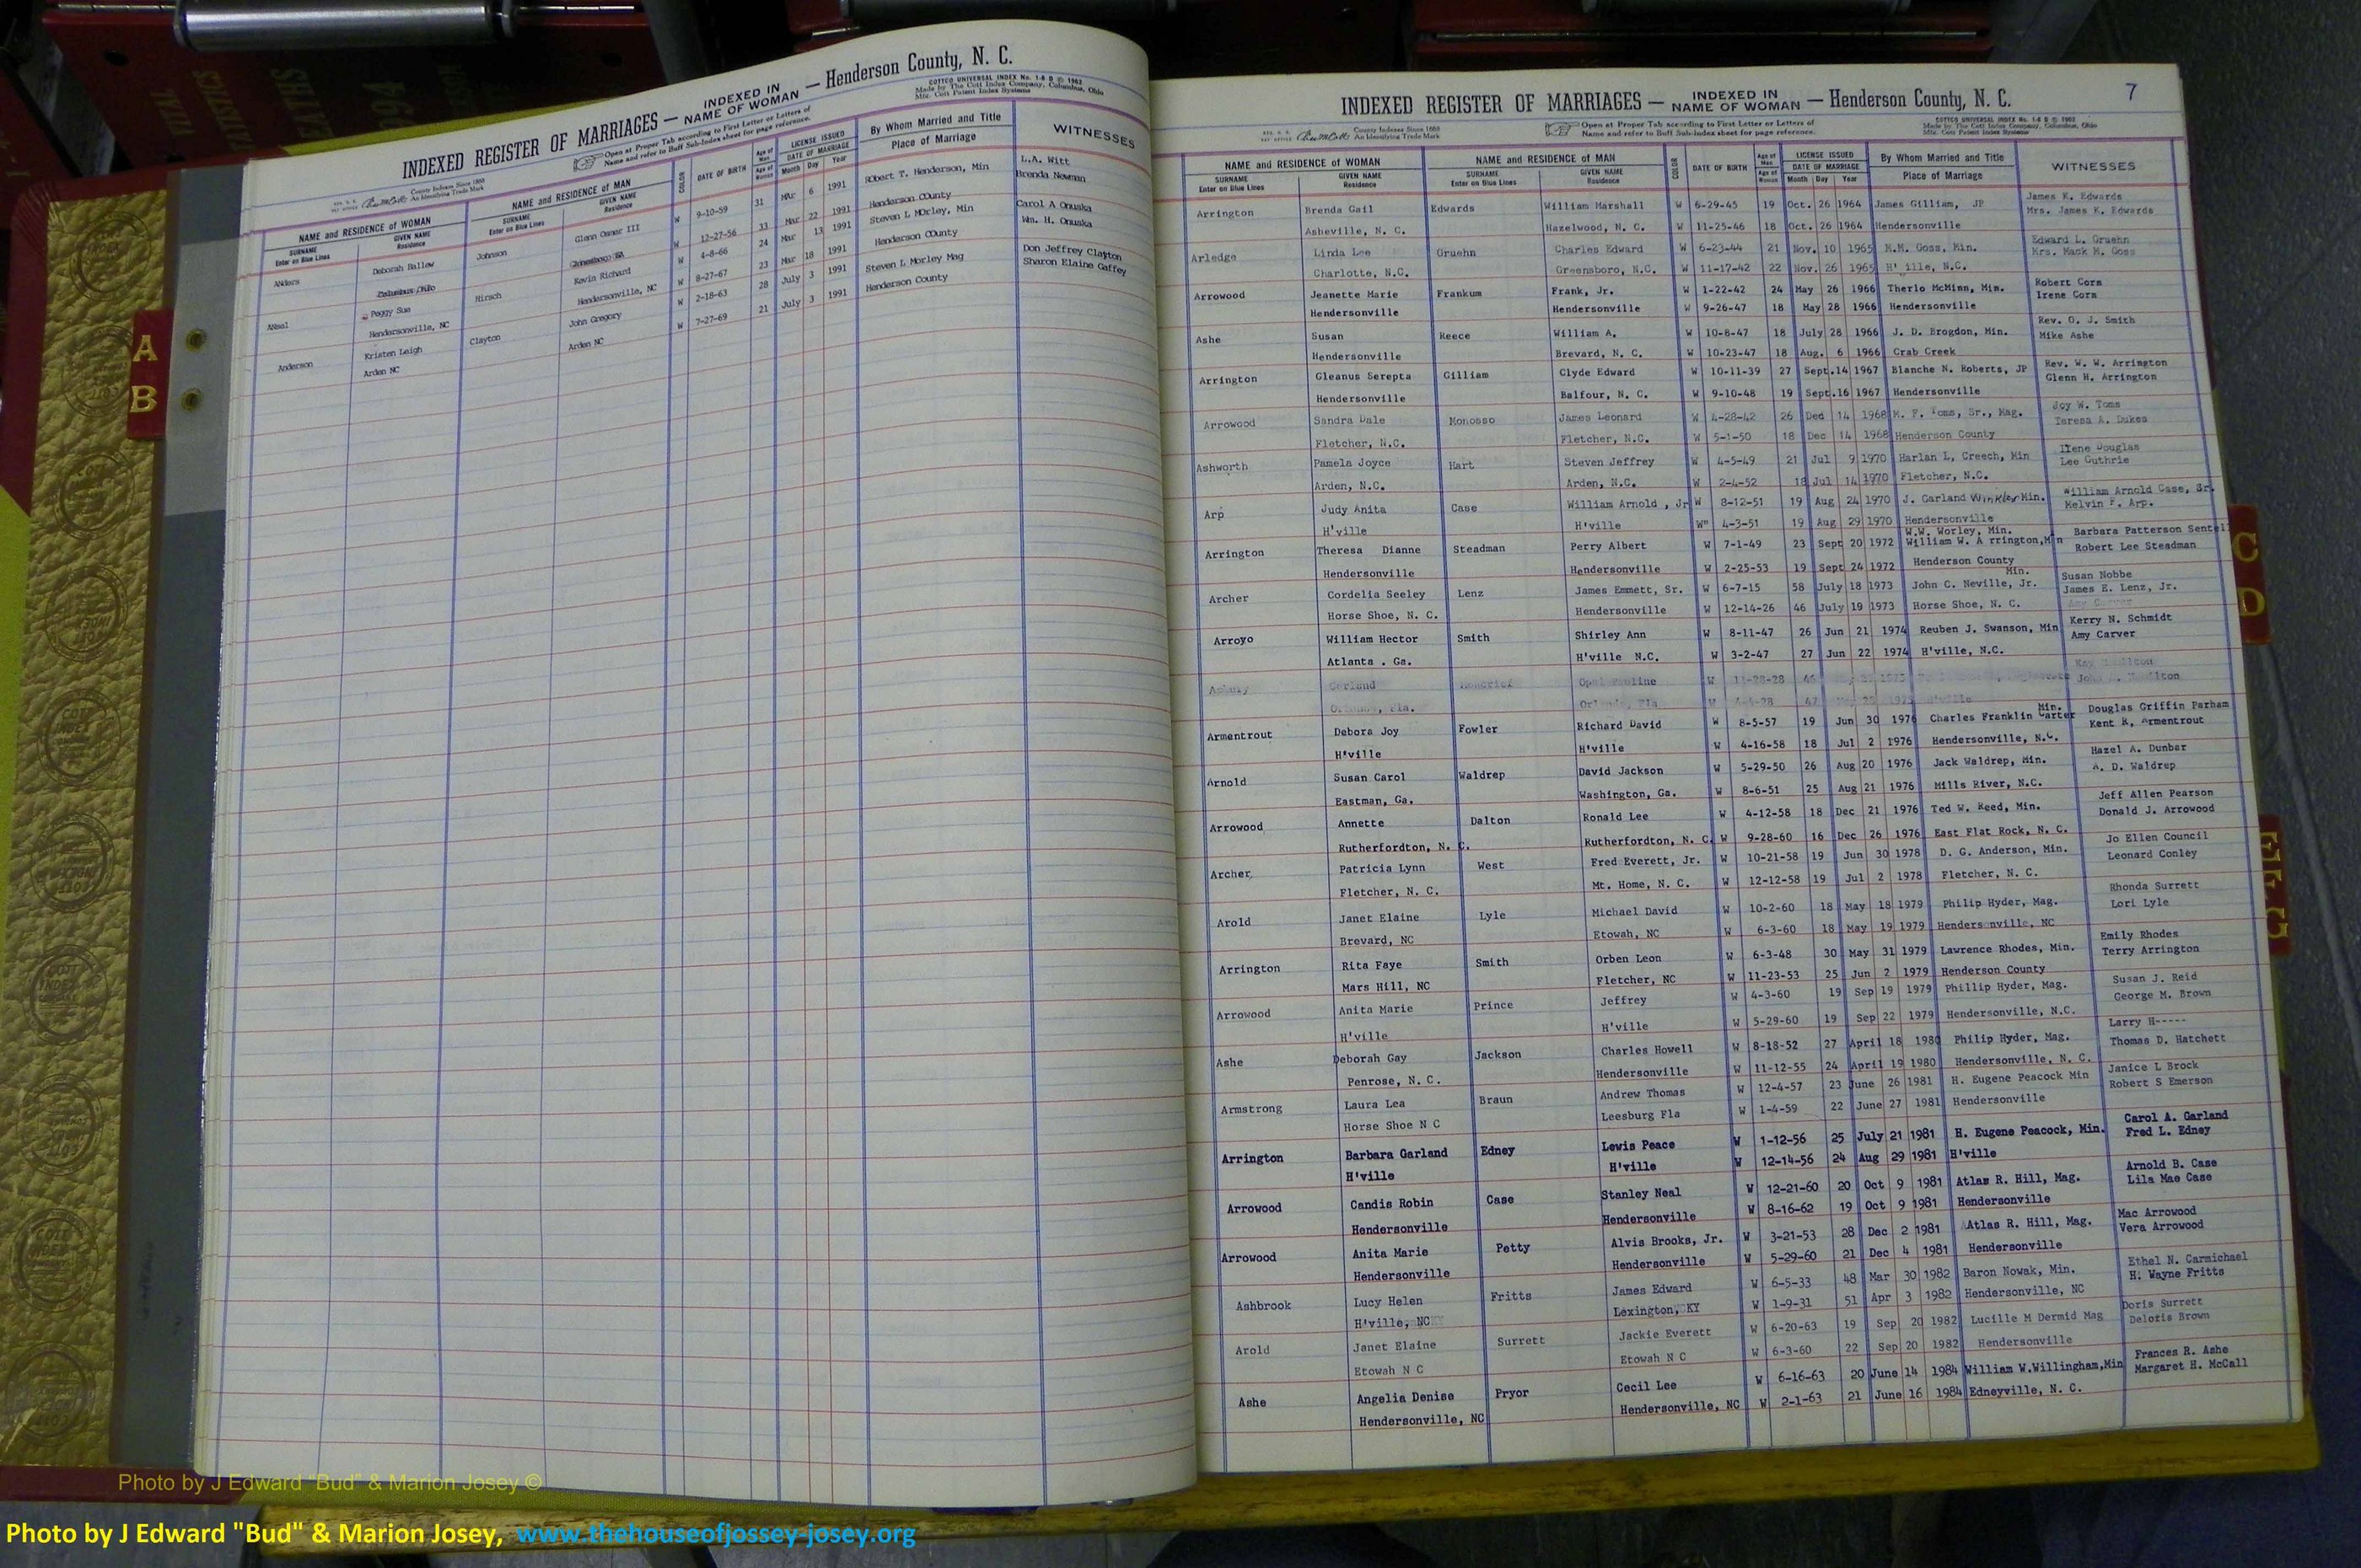 INDEXED REGISTER OF MARRIAGES — INDEXED IN NAME OF WOMAN — Henderson County, N. C.
COTTCO UNIVERSAL INDEX No. 1-8 B © 1962
Made by The Cott Index Company, Columbus, Ohio
Mfg. Cott Patent Index Systems
County Indexes Since 1888
An Identifying Trade Mark
Open at Proper Tab according to First Letter or Letters of
Name and refer to Buff Sub-Index sheet for page reference.
NAME and RESIDENCE OF WOMAN NAME and RESIDENCE OF MAN COLOR DATE OF BIRTH Age of Man LICENSE ISSUED By Whom Married and Title WITNESSES
SURNAME GIVEN NAME SURNAME GIVEN NAME Age of Woman DATE OF MARRIAGE Place of Marriage
Enter on Blue Lines Residence Enter on Blue Lines Residence Month Day Year
ANders Deborah Ballew Johnson Glenn Osmer III W 9-10-59 31 MAr 6 1991 RObert T. Henderson, Min L.A. Witt
Columbus OHio W 12-27-56 33 Mar 22 1991 Henderson COunty Brenda Newman
ANsel Peggy Sue Hirsch Kevin Richard W 4-8-66 24 Mar 13 1991 Steven L MOrley, Min Carol A Onuska
Hendersonville, NC Hendersonville, NC W 8-27-67 23 Mar 18 1991 Henderson COunty Wm. H. Onuska
Anderson Kristen Leigh Clayton John Gregory W 2-18-63 28 July 3 1991 Steven L Morley Mag Don Jeffrey Clayton
Arden NC Arden NC W 7-27-69 21 July 3 1991 Henderson County Sharon Elaine Gaffey
A
B
7
INDEXED REGISTER OF MARRIAGES — INDEXED IN NAME OF WOMAN — Henderson County, N. C.
County Indexes Since 1888
An Identifying Trade Mark
Open at Proper Tab according to First Letter or Letters of
Name and refer to Buff Sub-Index sheet for page reference.
COTTCO UNIVERSAL INDEX No. 1-8 B © 1962
Made by The Cott Index Company, Columbus, Ohio
Mfg. Cott Patent Index Systems
NAME and RESIDENCE OF WOMAN NAME and RESIDENCE OF MAN COLOR DATE OF BIRTH Age of Man LICENSE ISSUED By Whom Married and Title WITNESSES
SURNAME GIVEN NAME SURNAME GIVEN NAME Age of Woman DATE OF MARRIAGE Place of Marriage
Enter on Blue Lines Residence Enter on Blue Lines Residence Month Day Year
Arrington Brenda Gail Edwards William Marshall W 6-29-45 19 Oct. 26 1964 James Gilliam, JP James K. Edwards
Asheville, N. C. Hazelwood, N. C. W 11-25-46 18 Oct. 26 1964 Hendersonville Mrs. James K. Edwards
Arledge Linda Lee Gruehn Charles Edward W 6-23-44 21 Nov. 10 1965 M.M. Goss, Min. Edward L. Gruehn
Charlotte, N.C. Greensboro, N.C. W 11-17-42 22 Nov. 26 1965 H' ille, N.C. Mrs. Mack M. Goss
Arrowood Jeanette Marie Frankum Frank, Jr. W 1-22-42 24 May 26 1966 Therlo McMinn, Min. Robert Corn
Hendersonville Hendersonville W 9-26-47 18 May 28 1966 Hendersonville Irene Corn
Ashe Susan Reece William A. W 10-8-47 18 July 28 1966 J. D. Brogdon, Min. Rev. O. J. Smith
Hendersonville Brevard, N. C. W 10-23-47 18 Aug. 6 1966 Crab Creek Mike Ashe
Arrington Gleanus Serepta Gilliam Clyde Edward W 10-11-39 27 Sept.14 1967 Blanche N. Roberts, JP Rev. W. W. Arrington
Hendersonville Balfour, N. C. W 9-10-48 19 Sept.16 1967 Hendersonville Glenn H. Arrington
Arrowood Sandra Dale Monosso James Leonard W 4-28-42 26 Dec 14 1968 M. F. Toms, Sr., Mag. Joy W. Toms
Fletcher, N.C. Fletcher, N.C. W 5-1-50 18 Dec 14 1968 Henderson County Teresa A. Dukes
Ashworth Pamela Joyce Hart Steven Jeffrey W 4-5-49 21 Jul 9 1970 Harlan L, Creech, Min Irene Douglas
Arden, N.C. Arden, N.C. W 2-4-52 18 Jul 14 1970 Fletcher, N.C. Lee Guthrie
Arp Judy Anita Case William Arnold , Jr W 8-12-51 19 Aug 24 1970 J. Garland Winkler Min. William Arnold Case, Sr.
H'ville H'ville W" 4-3-51 19 Aug 29 1970 Hendersonville Melvin F. Arp.
W.W. Worley, Min.
Arrington Theresa Dianne Steadman Perry Albert W 7-1-49 23 Sept 20 1972 William W. A rrington,Min Barbara Patterson Sentell
Hendersonville Hendersonville W 2-25-53 19 Sept 24 1972 Henderson County Robert Lee Steadman
Min.
Archer Cordelia Seeley Lenz James Emmett, Sr. W 6-7-15 58 July 18 1973 John C. Neville, Jr. Susan Nobbe
Horse Shoe, N. C. Hendersonville W 12-14-26 46 July 19 1973 Horse Shoe, N. C. James E. Lenz, Jr.
Arroyo William Hector Smith Shirley Ann W 8-11-47 26 Jun 21 1974 Reuben J. Swanson, Min Kerry N. Schmidt
Atlanta . Ga. H'ville N.C. W 3-2-47 27 Jun 22 1974 H'ville, N.C. Amy Carver
Garland W 46
Fla. W 47 H'ville
Min.
Armentrout Debora Joy Fowler Richard David W 8-5-57 19 Jun 30 1976 Charles Franklin Carter Douglas Griffin Parham
H'ville H'ville W 4-16-58 18 Jul 2 1976 Hendersonville, N.C. Kent R, Armentrout
Arnold Susan Carol Waldrep David Jackson W 5-29-50 26 Aug 20 1976 Jack Waldrep, Min. Hazel A. Dunbar
Eastman, Ga. Washington, Ga. W 8-6-51 25 Aug 21 1976 Mills River, N.C. A. D. Waldrep
Arrowood Annette Dalton Ronald Lee W 4-12-58 18 Dec 21 1976 Ted W. Reed, Min. Jeff Allen Pearson
Rutherfordton, N. C. Rutherfordton, N. C. W 9-28-60 16 Dec 26 1976 East Flat Rock, N. C. Donald J. Arrowood
Archer Patricia Lynn West Fred Everett, Jr. W 10-21-58 19 Jun 30 1978 D. G. Anderson, Min. Jo Ellen Council
Fletcher, N. C. Mt. Home, N. C. W 12-12-58 19 Jul 2 1978 Fletcher, N. C. Leonard Conley
Arold Janet Elaine Lyle Michael David W 10-2-60 18 May 18 1979 Philip Hyder, Mag. Rhonda Surrett
Brevard, NC Etowah, NC W 6-3-60 18 May 19 1979 Hendersonville, NC Lori Lyle
Arrington Rita Faye Smith Orben Leon W 6-3-48 30 May 31 1979 Lawrence Rhodes, Min. Emily Rhodes
Mars Hill, NC Fletcher, NC W 11-23-53 25 Jun 2 1979 Henderson County Terry Arrington
Arrowood Anita Marie Prince Jeffrey W 4-3-60 19 Sep 19 1979 Phillip Hyder, Mag. Susan J. Reid
H'ville H'ville W 5-29-60 19 Sep 22 1979 Hendersonville, N.C. George M. Brown
Ashe Deborah Gay Jackson Charles Howell W 8-18-52 27 April 18 1980 Philip Hyder, Mag. Larry H-----
Penrose, N. C. Hendersonville W 11-12-55 24 April 19 1980 Hendersonville, N. C. Thomas D. Hatchett
Armstrong Laura Lea Braun Andrew Thomas W 12-4-57 23 June 26 1981 H. Eugene Peacock Min Janice L Brock
Horse Shoe N C Leesburg Fla W 1-4-59 22 June 27 1981 Hendersonville Robert S Emerson
Arrington Barbara Garland Edney Lewis Peace W 1-12-56 25 July 21 1981 H. Eugene Peacock, Min. Carol A. Garland
H'ville H'ville W 12-14-56 24 Aug 29 1981 H'ville Fred L. Edney
Arrowood Candis Robin Case Stanley Neal W 12-21-60 20 Oct 9 1981 Atlas R. Hill, Mag. Arnold B. Case
Hendersonville Hendersonville W 8-16-62 19 Oct 9 1981 Hendersonville Lila Mae Case
Arrowood Anita Marie Petty Alvis Brooks, Jr. W 3-21-53 28 Dec 2 1981 Atlas R. Hill, Mag. Mac Arrowood
Hendersonville Hendersonville W 5-29-60 21 Dec 4 1981 Hendersonville Vera Arrowood
Ashbrook Lucy Helen Fritts James Edward W 6-5-33 48 Mar 30 1982 Baron Nowak, Min. Ethel N. Carmichael
H'ville, NC Lexington, KY W 1-9-31 51 Apr 3 1982 Hendersonville, NC H. Wayne Fritts
Arold Janet Elaine Surrett Jackie Everett W 6-20-63 19 Sep 20 1982 Lucille M Dermid Mag Doris Surrett
Etowah N C Etowah N C W 6-3-60 22 Sep 20 1982 Hendersonville Deloris Brown
Ashe Angelia Denise Pryor Cecil Lee W 6-16-63 20 June 14 1984 William W.Willingham,Min Frances R. Ashe
Hendersonville, NC Hendersonville, NC W 2-1-63 21 June 16 1984 Edneyville, N. C. Margaret H. McCall
C
D
E
F
G
Photo by J Edward "Bud" & Marion Josey ©
Photo by J Edward "Bud" & Marion Josey, www.thehouseofjossey-josey.org